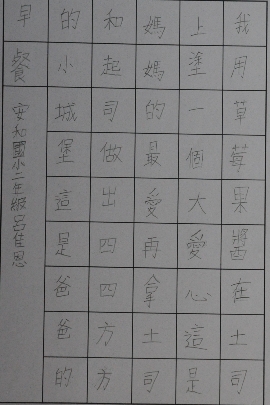 我用草莓果醬在土司
上塗一個大愛心這是
媽媽的最愛再拿土司
和起司做出四四方方
的小城堡這是爸爸的
早餐
安和國小二年級呂佳恩